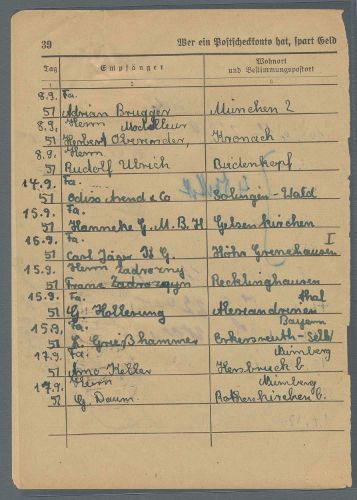 39 Wer ein Postscheckkonto hat, spart Geld
Tag Empfänger Wohnort und Bestimmungspostort
1 2 3
8.9. Fa.
51 Adrian Brugger München 2
8.9. Herrn Modelleur
51 Herbert Oberender, Kronach
8.9. Herrn
51 Rudolf Ulrich
14.9. Fa.
51 & Co Solingen-Wald
15.9. Fa.
51 Hanneke G.M.B.H Gelsenkirchen
15.9. Fa. I
51 Carl Jäger K G. Höhr Grenzhausen
15.9. Herrn Zadrozny
51 Franz Recklinghausen
15.9. Fa. thal
51 G. Hollerung Alexandrinen
15.9. Fa. Bayern
51 Greißhammer Erkersreuth-Selb
17.9. Fa. Nürnberg
51 Arno Keller Hersbruck b
17.9. Herrn Nürnberg
51 G. Daum. Rothenkirchen b.